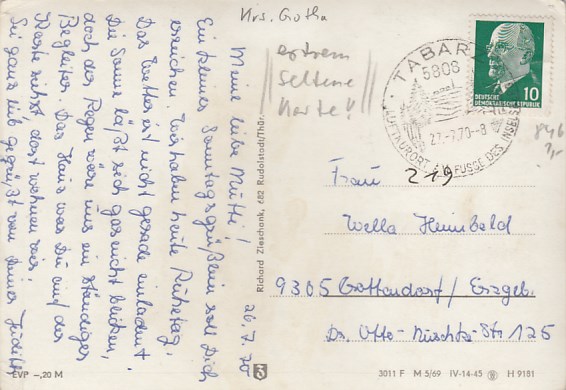 Krs. Gotha
extrem
seltene
Karte!!
26.7.70
Meine liebe Mutti!
Ein kleines Sonntagsgrüßlein soll Dich
erreichen. Wir haben heute Ruhetag.
Das Wetter ist nicht gerade einladend.
Die Sonne läßt sich gar nicht blicken,
doch der Regen wäre uns ein ständiger
Begleiter. Das Haus was Du auf der
Karte siehst dort wohnen wir.
Sei ganz lieb gegrüßt von Deiner Judith
EVP -,20 M
Richard Zieschank, 682 Rudolstadt/Thür.
TABARZ
5808
27.-7.70-8
LUFTKURORT AM FUSSE DES INSELSBERGES
DEUTSCHE
DEMOKRATISCHE REPUBLIK
10
846
7,-
219
Frau
Wella Heimbold
9305 Gottendorf/Erzgeb.
Dr. Otto-Nuschke-Str 125
3011 F M 5/69 IV-14-45 H 9181